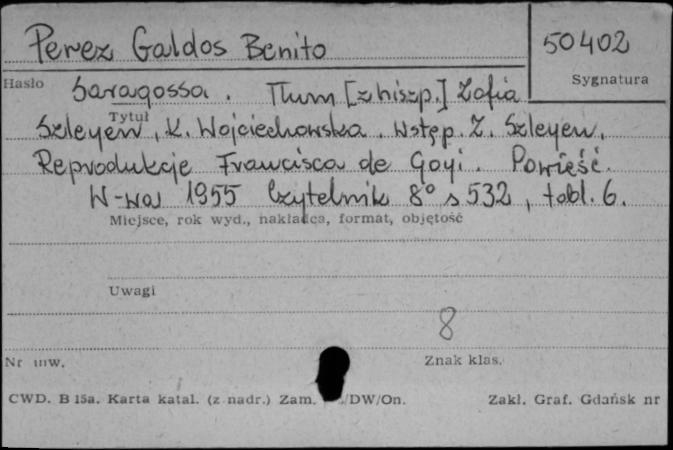 Perez Galdos Benito
50402
Hasło
Sygnatura
Saragossa. Tłum [z hiszp.] Zofia
Tytuł
Szleyen, K. Wojciechowska. Wstęp. Z. Szleyen.
Reprodukcje Francisca de Goyi. Powieść.
W-wa 1955 Czytelnik 8° s 532, tabl. 6.
Miejsce, rok wyd., nakładca, format, objętość
Uwagi
8
Nr inw.
Znak klas.
CWD. B 15a. Karta katal. (z nadr.) Zam. /DW/On.
Zakł. Graf. Gdańsk nr